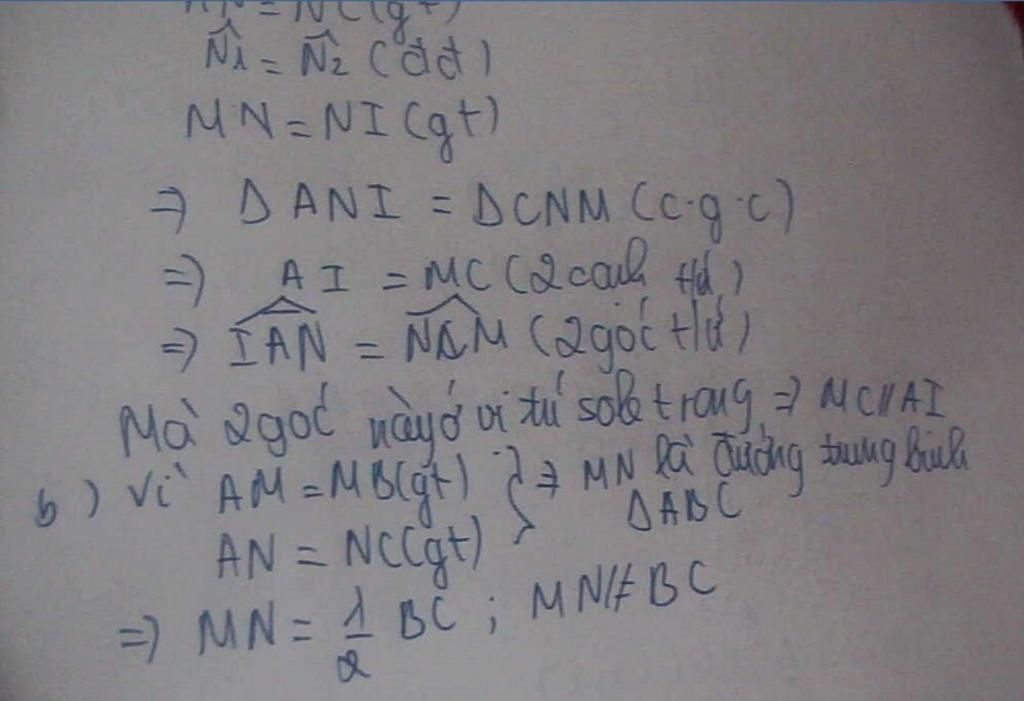 AN = NC (gt)
N̂1 = N̂2 (đđ)
MN = NI (gt)
=> Δ ANI = ΔCNM (c.g.c)
=> AI = MC (2 cạnh t/ứ)
=> IAN = NCM (2 góc t/ứ)
Mà 2 góc này ở vị trí sole trong => MC//AI
b) Vì AM = MB (gt) } => MN là đường trung bình
ΔABC
AN = NC (gt)
=> MN = 1/2 BC ; MN // BC